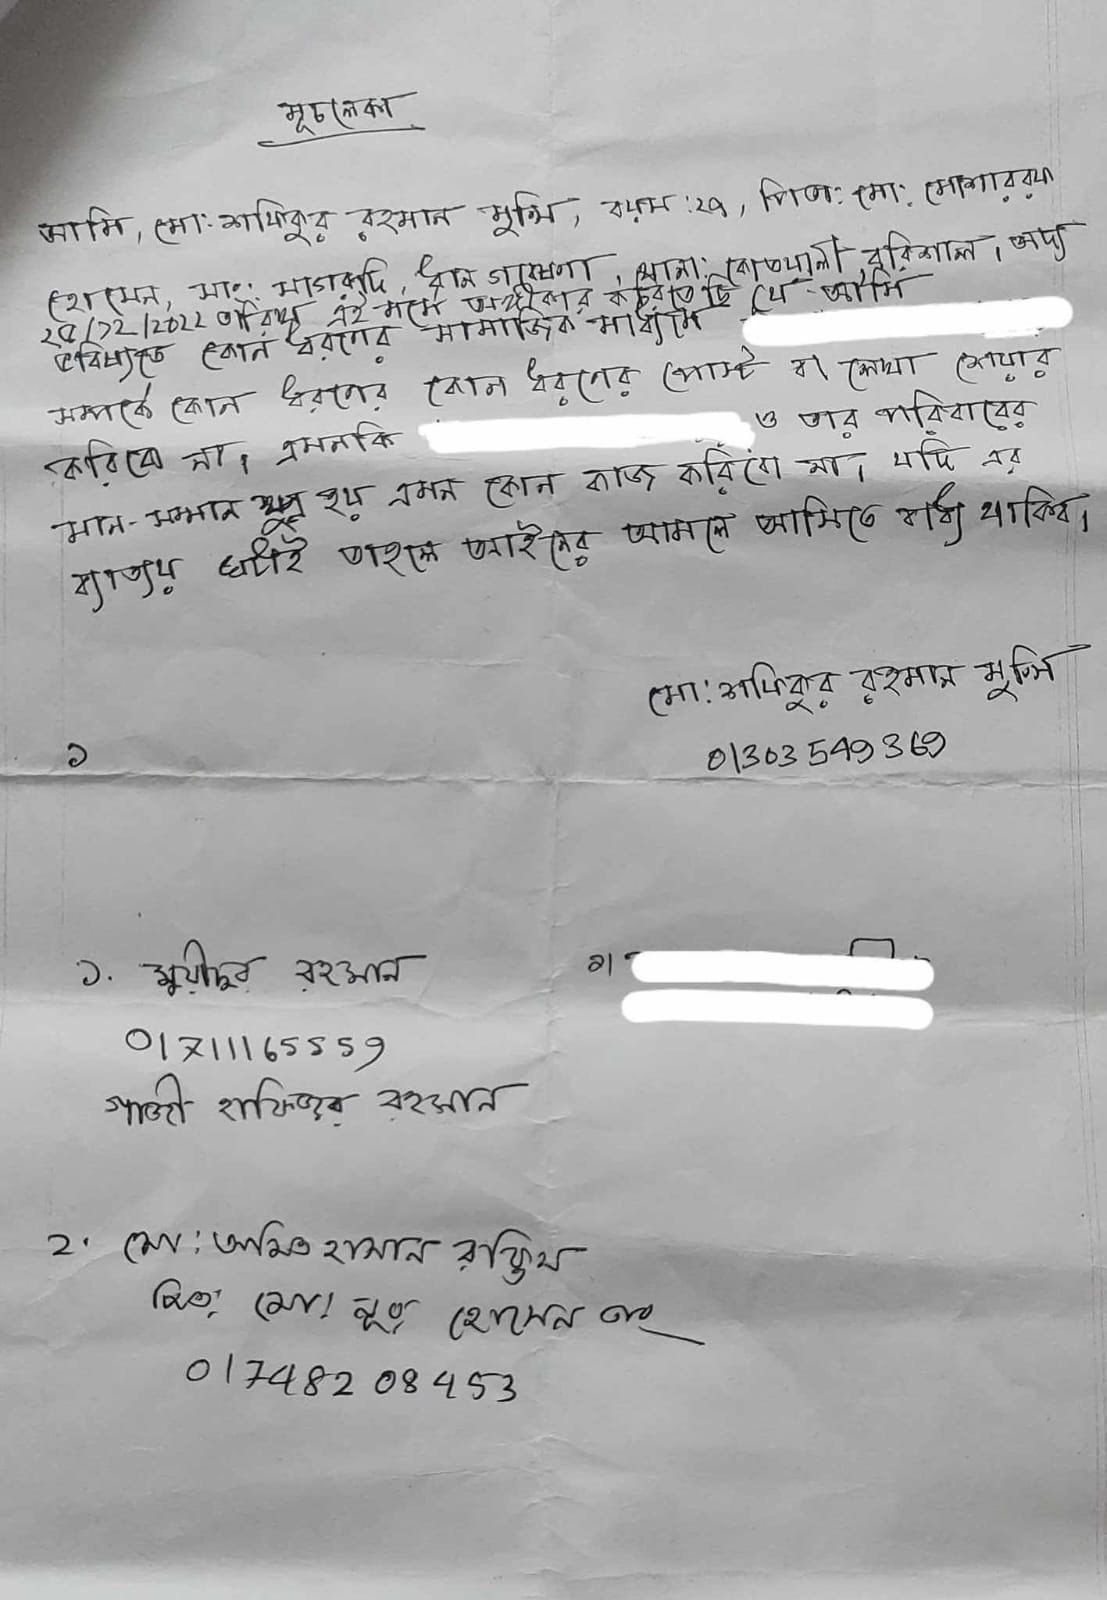 মুচলেকা
আমি, মো: শফিকুর রহমান মুন্সি, বয়স: ২৭, পিতা: মো: মোশাররফ
হোসেন, সাং: সাগরদি, ধান গবেষণা, থানা: কোতয়ালী, বরিশাল। অদ্য
২৫/১২/2022 তারিখ এই মর্মে অঙ্গীকার করিতেছি যে আমি
ভবিষ্যতে কোন ধরণের সামাজিক মাধ্যমে
সম্পর্কে কোন ধরণের কোন ধরণের পোস্ট বা লেখা শেয়ার
করিবো না। এমনকি ও তার পরিবারের
মান-সম্মান ক্ষুন্ন হয় এমন কোন কাজ করিবো না। যদি এর
ব্যাত্যয় ঘটাই তাহলে আইনের আমলে আসিতে বাধ্য থাকিব।
মো: শফিকুর রহমান মুন্সি
01303549369
১
১. মুয়ীদুর রহমান
01711165559
গাজী হাফিজুর রহমান
৩।
2. মো: আমিত হাসান রক্তিম
পিতা: মো: নুরু হোসেন
01748208453